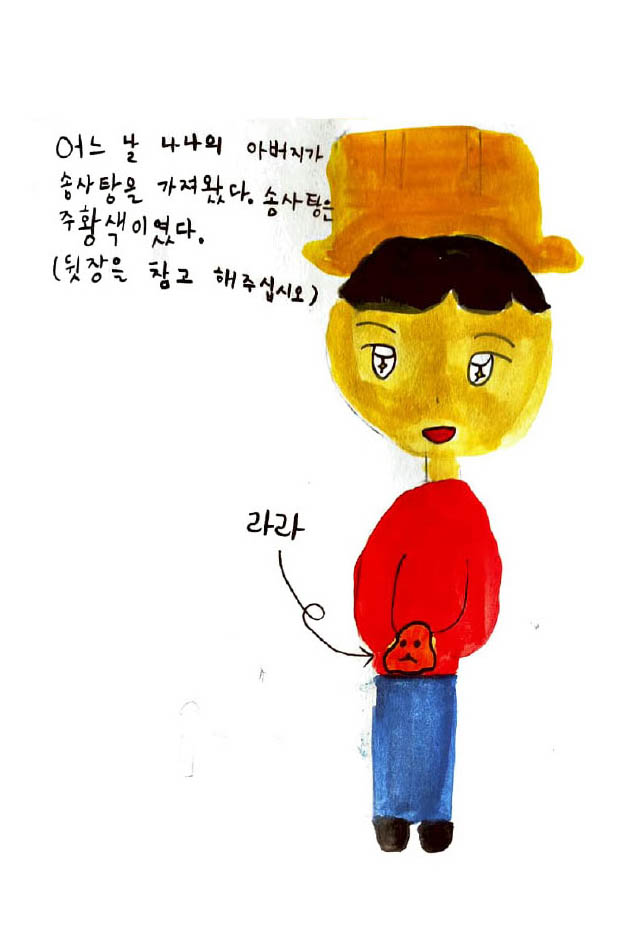 어느 날 나나의 아버지가
송사탕을 가져왔다. 송사탕은
주황색이였다.
(뒷장을 참고 해주십시오)
라라